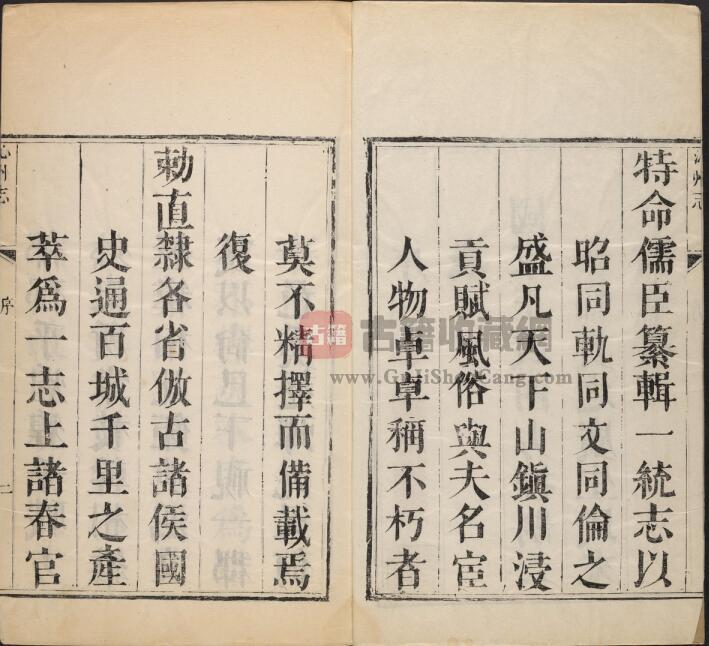 特命儒臣纂輯一統志以
昭同軌同文同倫之
盛凡天下山鎭川浸
貢賦風俗與夫名宦
人物卓卓稱不朽者
莫不精擇而備載焉
復
勅直隸各省倣古諸侯國
史通百城千里之產
萃爲一志上諸春官
州志
序
二
古籍
古籍收藏網
www.GuJiShouCang.com